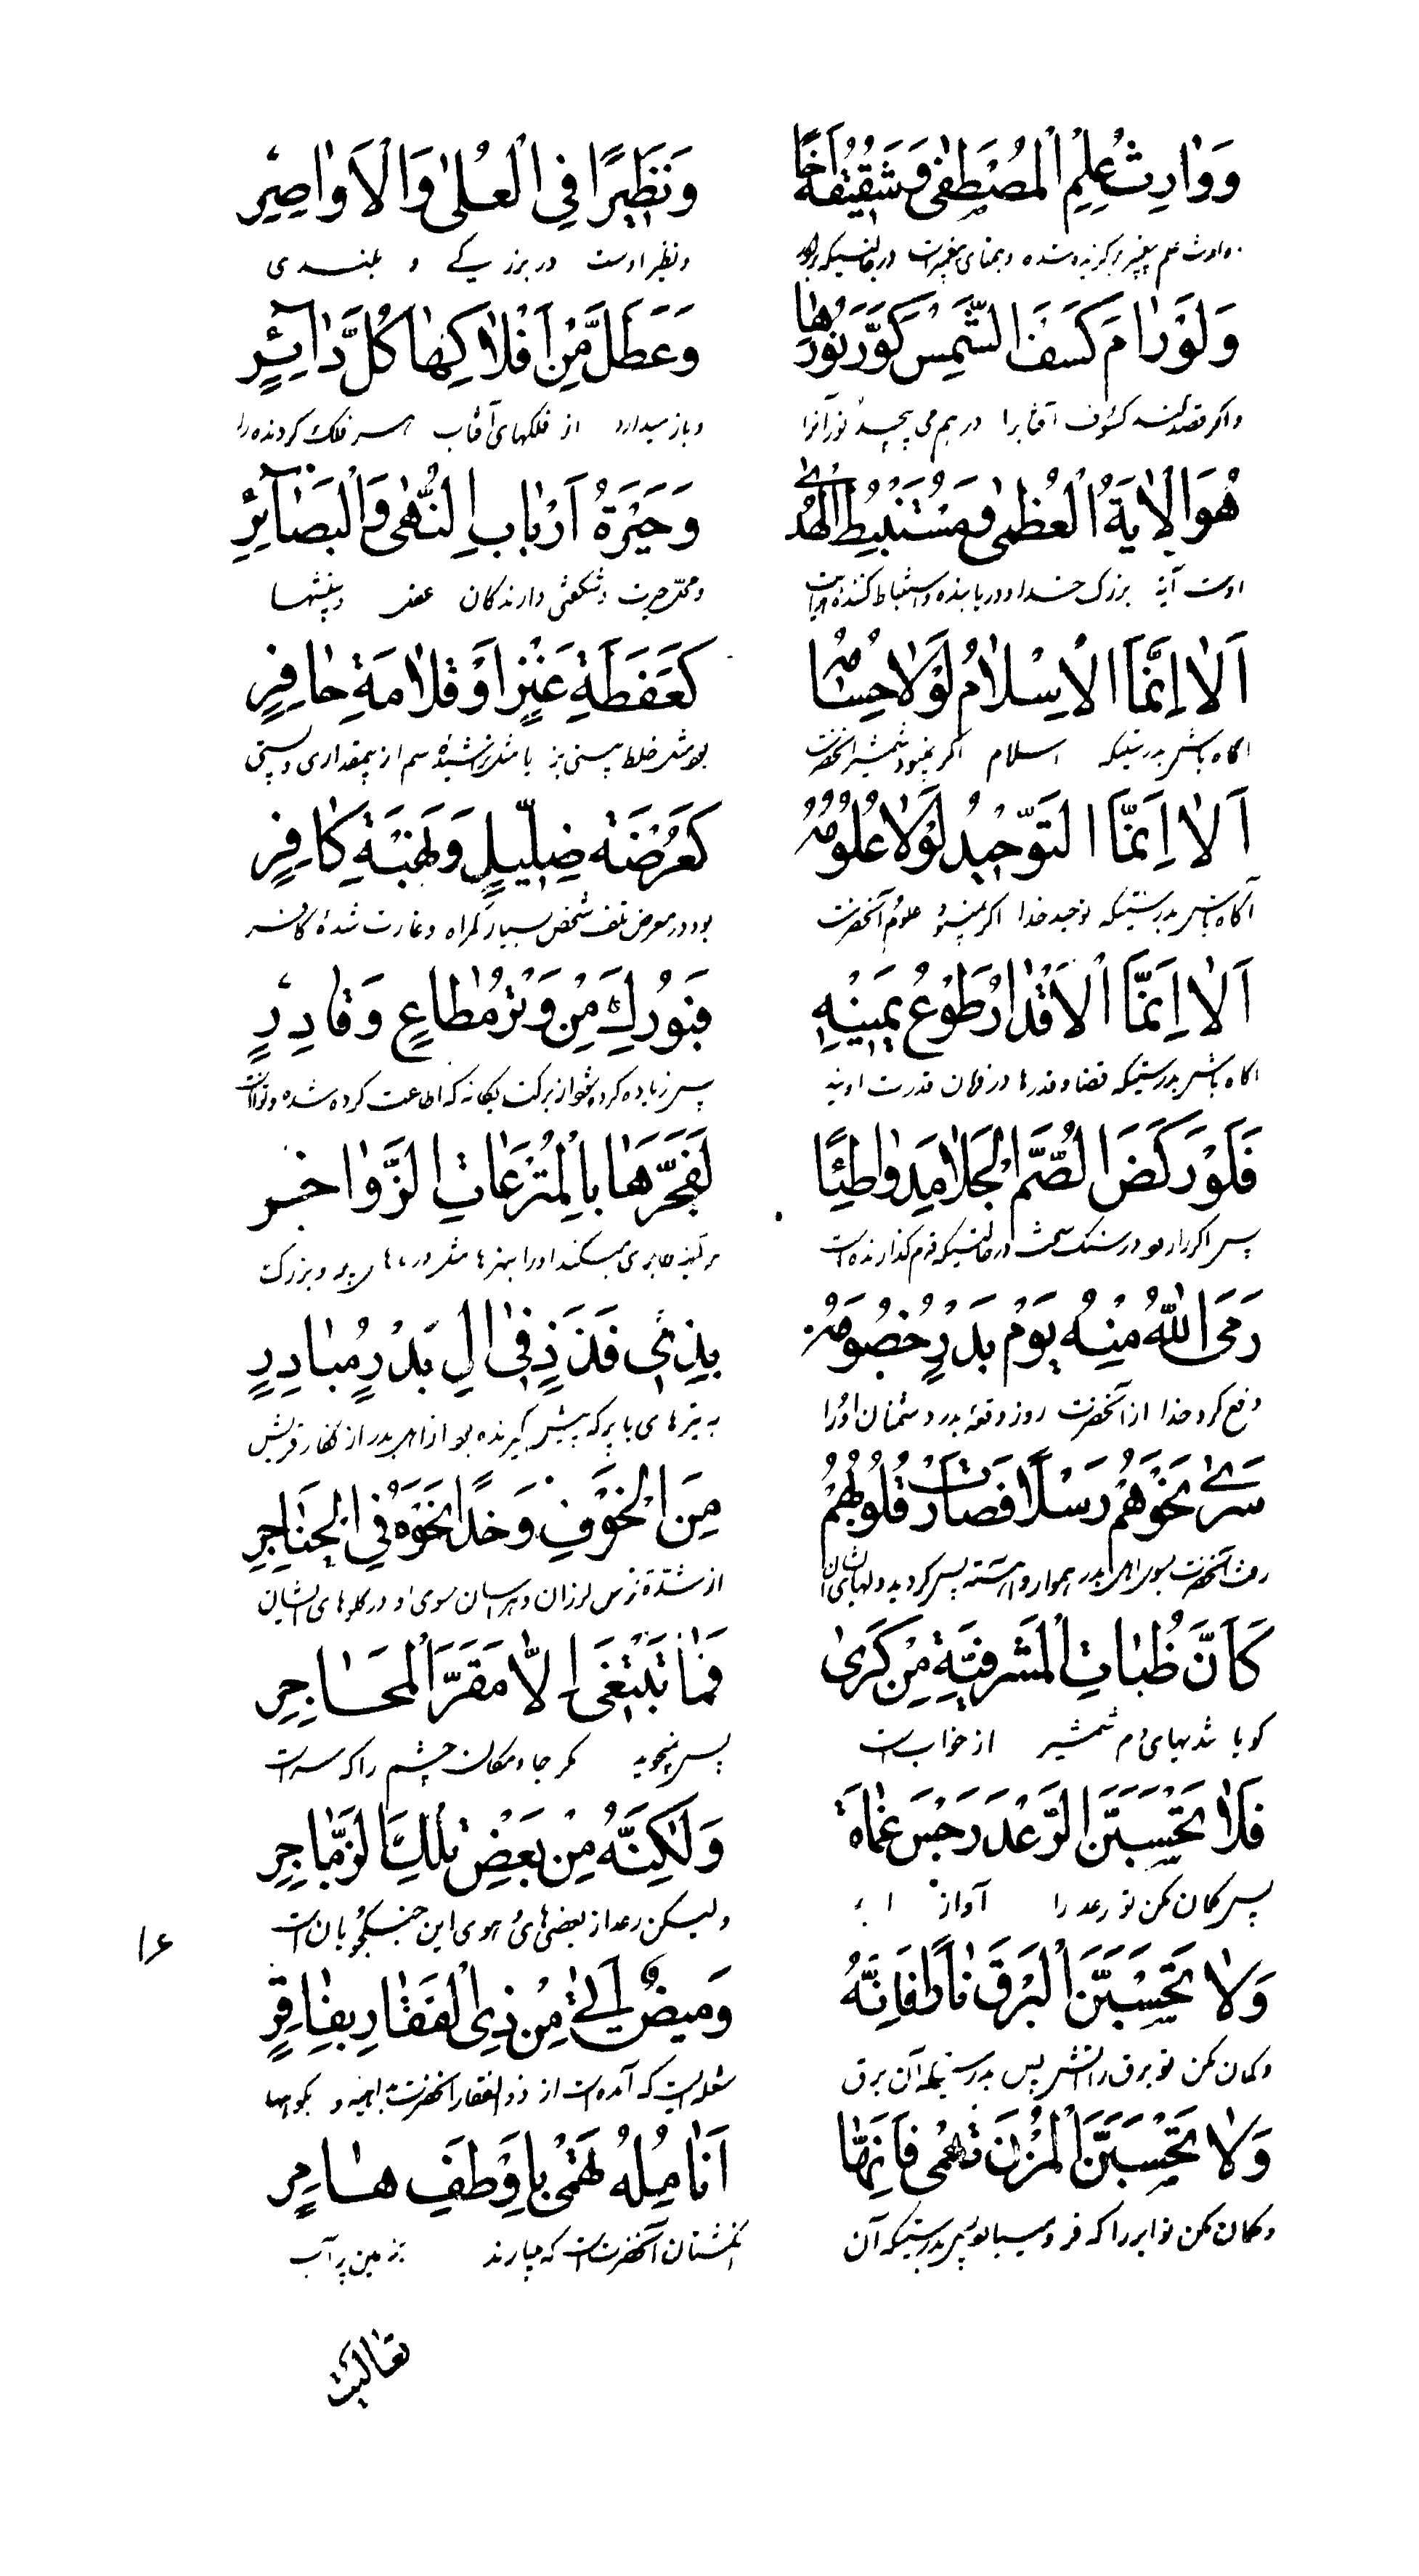 وَوٰارِثُ عِلْمِ الْمُصْطَفٰى وَشَقِيقُهُ أَخًا وَنَظِيرًا فِي الْعُلٰى وَالْاَوٰاصِرِ
ووارث علم پیغمبر برگزیده شده وهمتای پیغمبرست درحالتیکه برادر ونظیر اوست در بزرگی و بلندی
وَلَوْ رٰامَ كَسْفَ الشَّمْسِ كَوَّرَ نُورَهٰا وَعَطَّلَ مِّنْ اَفْلٰاكِهٰا كُلَّ دٰآئِرٍ
واکر قصد کند کسوف آفتابرا در هم می پیچید نور آنرا وباز میدارد از فلکهای آفتاب هر فلک کردنده را
هُوَ الْاٰيَةُ الْعُظْمٰى وَمُسْتَنْبِطُ الْهُدٰى وَحَيْرَةُ اَرْبٰابِ النُّهٰى وَالْبَصٰآئِرِ
اوست آیة بزرک خدا ودریابنده واستنباط کننده هدایت ومحل حیرت وشکفتی دارندکان عقل وبینشها
اَلٰا اِنَّمَا الْاِسْلٰامُ لَوْلٰا حِسٰامُهُ كَعَفْطَةِ عَنْزٍ اَوْ قُلٰامَةِ حٰافِرٍ
اکاه باش بدرستیکه اسلام اکر نمیبود شمشیر انحضرت بود مثل خلط بینی بز یا مثل تراشیدۀ سم از بیمقداری وپستی
اَلٰا اِنَّمَا التَّوْحِيدُ لَوْلٰا عُلُومُهُ كَعُرْضَةِ ضِلِّيلٍ وَنَهْبَةِ كٰافِرٍ
آکاه باش بدرستیکه توحید خدا اکر نمیبود علوم آنحضرت بود در معرض تلف شخص بسیار کمراه وغارت شدۀ کافر
اَلٰا اِنَّمَا الْاَقْدٰارُ طَوْعُ يَمِينِهِ فَبُورِكَ مِنْ وَتْرٍ مُطٰاعٍ وَقٰادِرٍ
اکاه باش بدرستیکه قضا وقدرها در فرمان قدرت اویند پس زیاده کرده شواز برکت یکانه که اطاعت کرده شده وتوانات
فَلَوْ رَكَضَ الصُّمَّ الْجَلٰامِدَ وٰاطِئًا لَفَجَّرَهٰا بِالْمُتْرَعٰاتِ الزَّوٰاخِرِ
پس اکر در سنک سخت درحالتیکه قدم کذارنده است
رَمَى اللّٰهُ مِنْهُ يَوْمَ بَدْرٍ خُصُومَهُ بِذِي فَذَذٍ فِي اٰلِ بَدْرٍ مُبٰادِرٍ
دفع کرد خدا از آنحضرت روز وقعۀ بدر دشمنان اورا به تیرهای با پر که پیش کیرنده بود از اهل بدر از کفار قریش
سَرٰى نَحْوَهُمْ رَسْلًا فَصٰارَتْ قُلُوبُهُمْ مِنَ الْخَوْفِ وَخْدًا نَحْوَهُ فِي الْحَنٰاجِرِ
رفت آنحضرت بسوی اهل بدر هموار واهسته پس کردید دلهای ایشان از شدة ترس لرزان وهراسان سوی او در کلوهای ایشان
كَاَنَّ ظُبٰاتِ الْمَشْرَفِيَّةِ مِنْ كَرٰى فَمٰا تَبْتَغِي اِلّٰا مَقَرَّ الْمَحٰاجِرِ
کویا تندیهای دم شمشیر از خواب است پس نمیجوید مکر جا ومکان چشم را که سراست
فَلٰا تَحْسَبَنَّ الرَّعْدَ رَجْسَ غَمٰامَةٍ وَلٰكِنَّهُ مِنْ بَعْضِ تِلْكَ الزَّمٰاجِرِ
پس کمان مکن تو رعد را آواز ابر ولیکن رعد از بعضی های و هوی این جنکجویان است
وَلٰا تَحْسَبَنَّ الْبَرْقَ نٰارًا فَاِنَّهُ وَمِيضٌ اَتٰى مِنْ ذِي الْفَقٰارِ بِفٰاقِرٍ
وکمان مکن تو برق را آتش پس بدرستیکه آن برق شعله ایست که آمده است از ذوالفقار انحضرت
۱۶
وَلٰا تَحْسَبَنَّ الْمُزْنَ تَهْمِي فَاِنَّهٰا اَنٰامِلُهُ تَهْمِي بِاَوْطَفِ هٰامِرٍ
وکمان مکن تو ابر را که فرو میبارد پس بدرستیکه آن انکشتان آنحضرت است که میبارند بزمین پر آب
تعالیت